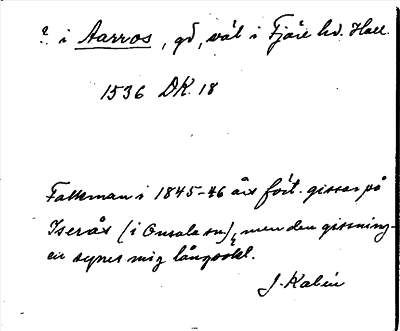 ? i Aarros, gd, väl i Fjäre hd. Hall.
1536 DK. 18
Falkman i 1845-46 års fört. gissar på
Iserås (i Onsala sn), men den gissning-
en synes mig långsökt.
J. Kalén